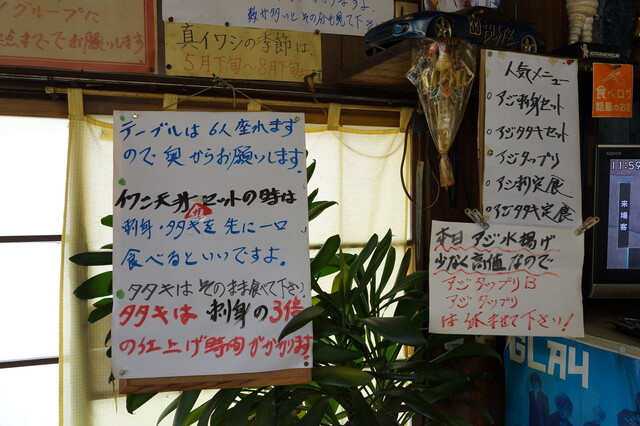 グループに
点までお願いします
数が多いとその分も見て下さい
真イワシの季節は、
5月下旬〜8月下旬
テーブルは6人座れます
ので奥からお願いします。
イワシ天丼セットの時は
刺身・タタキを先に一口
食べるといいですよ。
タタキはそのまま食べて下さい
タタキは刺身の3倍
の仕上げ時間がかかります
人気メニュー
○アジ刺身セット
○アジタタキセット
○アジタップリ
○アジ刺定食
○アジタタキ定食
本日アジ水揚げ
少なく高値なので
アジタップリB
アジタップリ
は休ませて下さい!
食べログ
話題のお店
11:59
来場客
GLAY